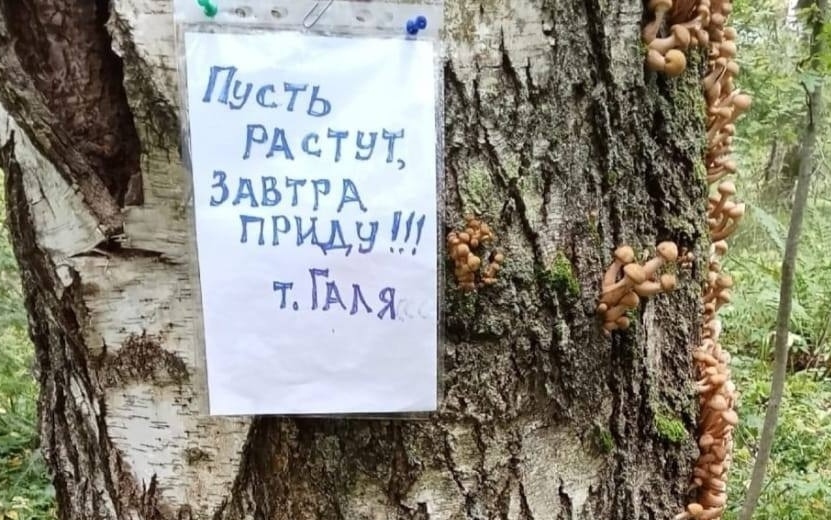 Пусть
растут,
завтра
приду!!!
т. Галя